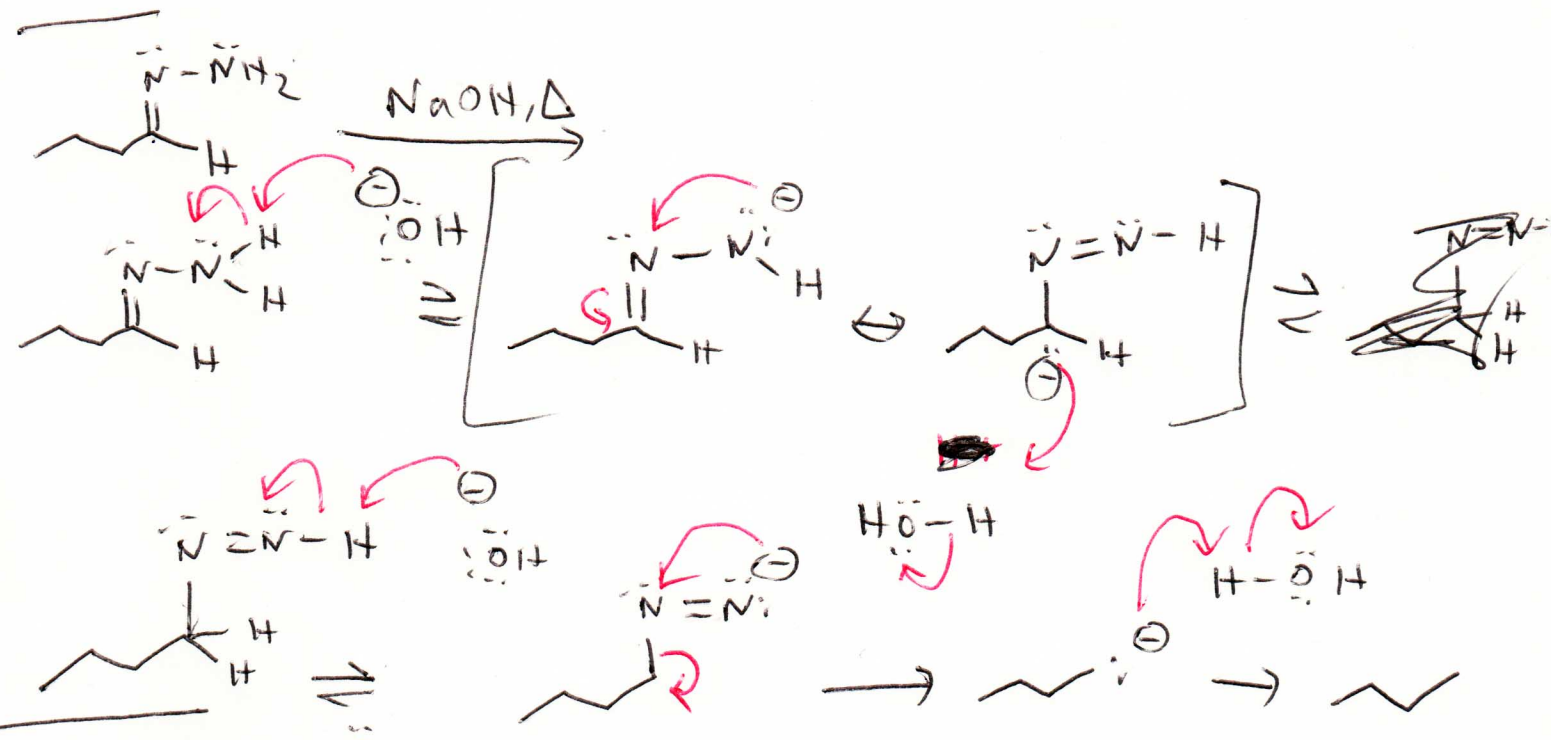 N-NH2
NaOH, Δ
H
⊖
:OH
N-N H
H
H
⇌
N-N: ⊖
H
H
↔
N=N-H
H
⊖
⇌
N=N-
H
H
N=N-H
⊖
:OH
H
H
⇌
N=N: ⊖
HO-H
→
: ⊖
H-OH
→